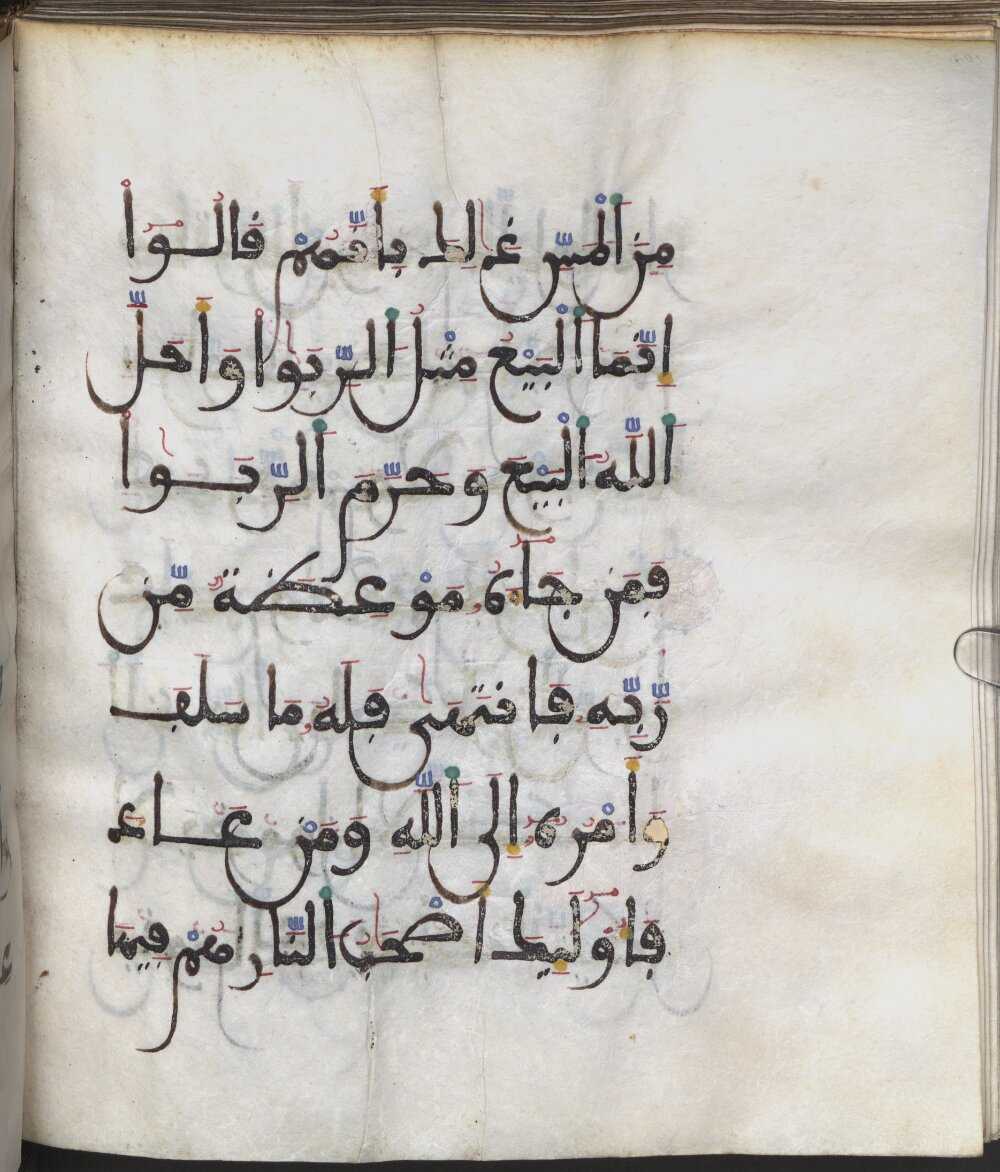 مِنَ اَلْمَسِّ ذَٰلِكَ بِأَنَّهُمْ قَالُوٓاْ
إِنَّمَا اَلْبَيْعُ مِثْلُ اُلرِّبَوٰاْ وَأَحَلَّ
اَللَّهُ اُلْبَيْعَ وَحَرَّمَ اَلرِّبَوٰاْ
فَمَن جَآءَهُۥ مَوْعِظَةٌ مِّن
رَّبِّهِۦ فَانتَهَىٰ فَلَهُۥ مَا سَلَفَ
وَأَمْرُهُۥٓ إِلَى اَللَّهِ وَمَنْ عَادَ
فَأُوْلَٰٓئِكَ أَصْحَٰبُ اُلنَّارِ هُمْ فِيهَا